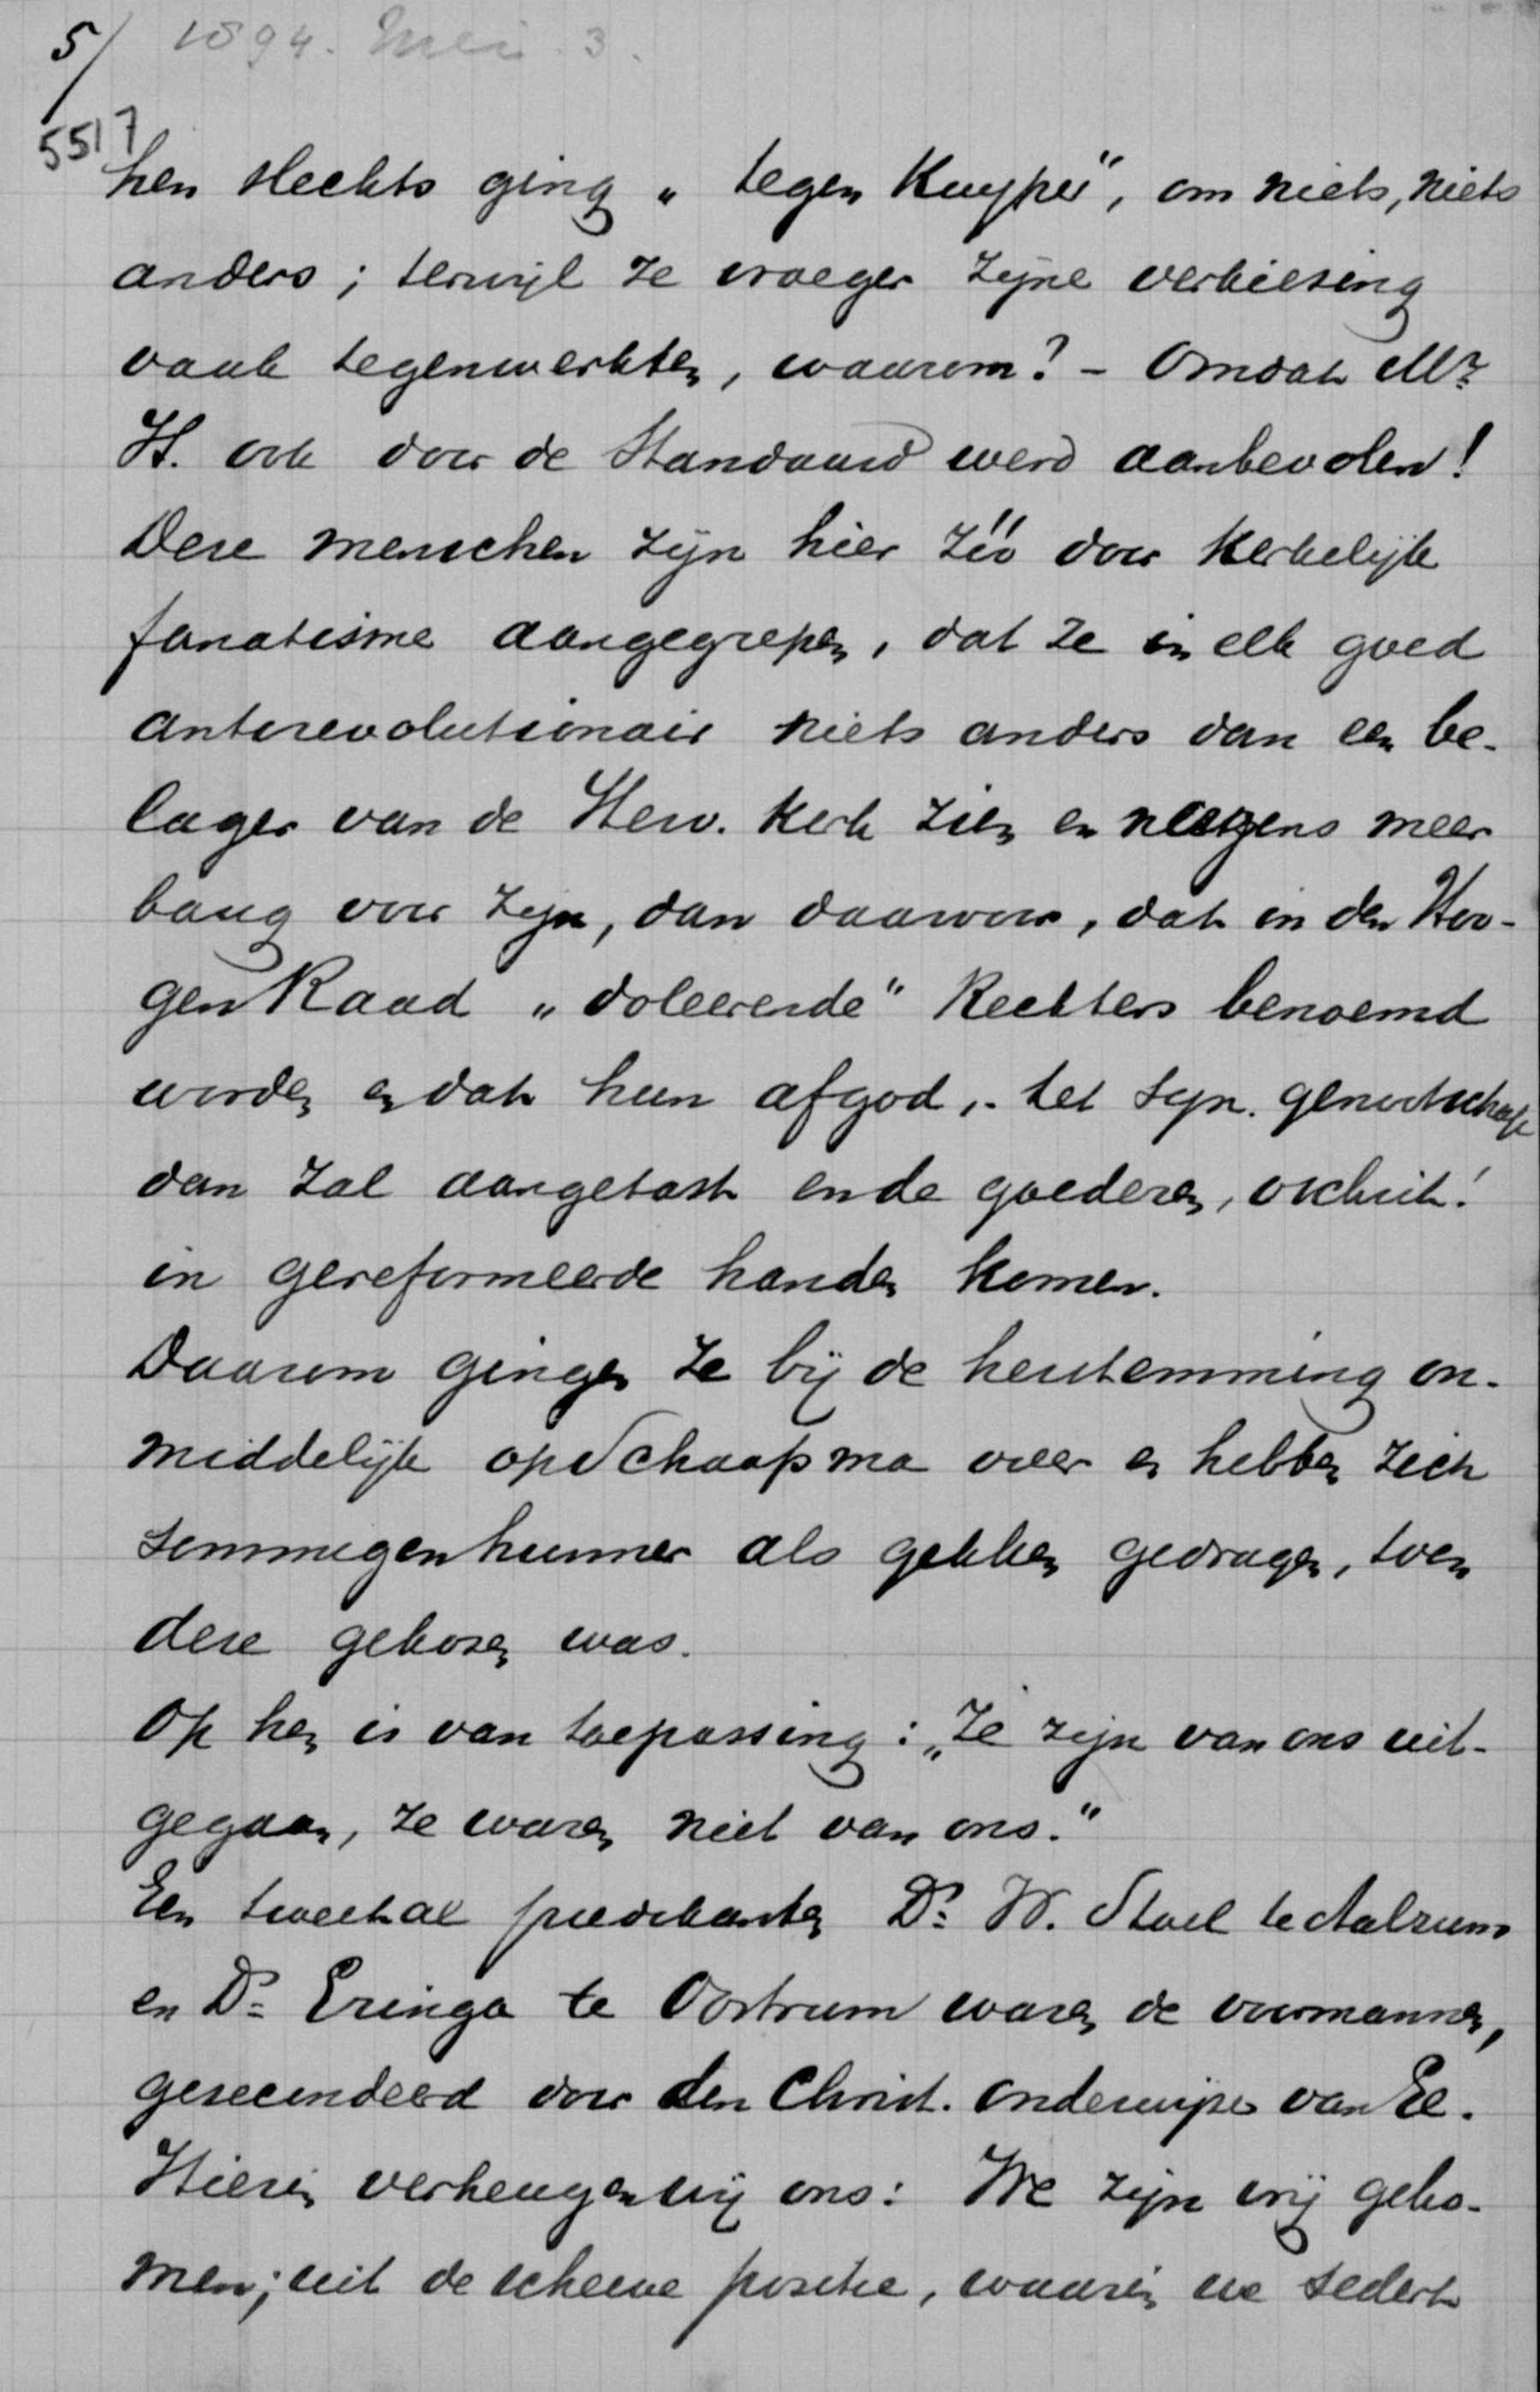 5/ 1894. Mei 3.
5517
hen slechts ging „tegen Kuyper", om niets, niets
anders; terwijl ze vroeger zijne verkiezing
vaak tegenwerkten, waarom? – Omdat Mr
H. ook door de Standaard werd aanbevolen!
Deze menschen zijn hier zóó door kerkelijk
fanatisme aangegrepen, dat ze in elk goed
antirevolutionair niets anders dan een be-
lager van de Herv. Kerk zien en nergens meer
bang voor zijn, dan daarvoor, dat in den Hoo-
gen Raad „doleerende" Rechters benoemd
worden en dat hun afgod, het Syn. genootschap
dan zal aangetast en de goederen, o schrik!
in gereformeerde handen komen.
Daarom gingen ze bij de herstemming on-
middelijk op Schaapma over en hebben zich
sommigen hunner als gekken gedragen, toen
deze gekozen was.
Op hen is van toepassing: „Ze zijn van ons uit-
gegaan, ze waren niet van ons."
Een tweetal predikanten Ds. W. Stoel te Aalzum
en Ds. Eringa te Oostrum waren de voormannen,
gesecondeerd door den Christ. onderwijzer van Ee.
Hierin verheugen wij ons: We zijn vrij geko-
men; uit de scheeve positie, waarin we sedert